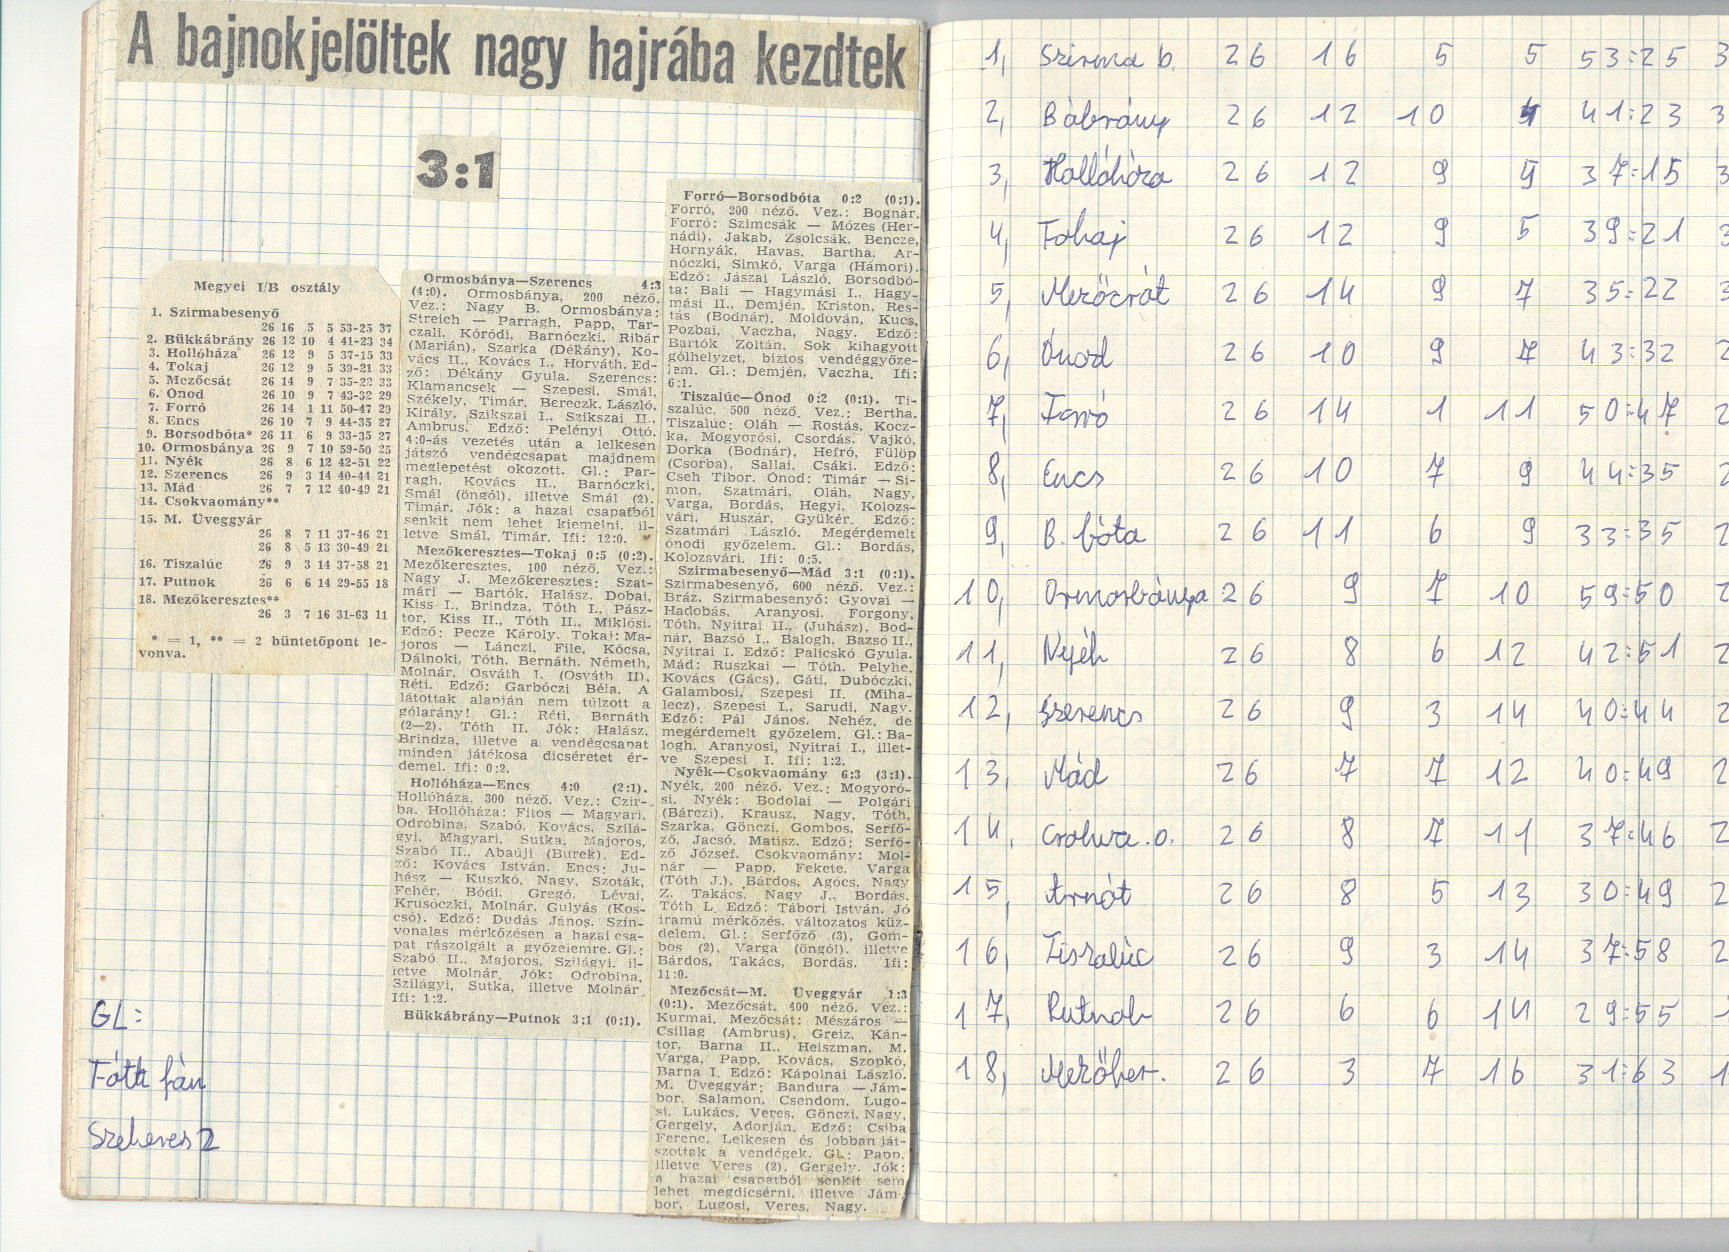 A bajnokjelöltek nagy hajrába kezdtek
3:1
Megyei I/B osztály
1. Szirmabesenyő
26 16 5 5 53-25 37
2. Bükkábrány 26 12 10 4 41-23 34
3. Hollóháza 26 12 9 5 37-15 33
4. Tokaj 26 12 9 5 39-21 33
5. Mezőcsát 26 14 9 7 35-22 33
6. Ónod 26 10 9 7 43-32 29
7. Forró 26 14 1 11 50-47 29
8. Encs 26 10 7 9 44-35 27
9. Borsodbóta* 26 11 6 9 33-35 27
10. Ormosbánya 26 9 7 10 59-50 25
11. Nyék 26 8 6 12 42-51 22
12. Szerencs 26 9 3 14 40-44 21
13. Mád 26 7 7 12 40-49 21
14. Csokvaomány**
15. M. Üveggyár
26 8 7 11 37-46 21
26 8 5 13 30-49 21
16. Tiszalúc 26 9 3 14 37-58 21
17. Putnok 26 6 6 14 29-55 18
18. Mezőkeresztes**
26 3 7 16 31-63 11
* = 1, ** = 2 büntetőpont le-
vonva.
GL:
Tóth fán
Szekeres 2
Ormosbánya—Szerencs 4:3
(4:0). Ormosbánya, 200 néző.
Vez.: Nagy B. Ormosbánya:
Streich — Parragh, Papp, Tar-
czali, Kóródi, Barnóczki, Ribár
(Marián), Szarka (Dékány), Ko-
vács II., Kovács I., Horváth. Ed-
ző: Dékány Gyula. Szerencs:
Klamancsek — Szepesi, Smál,
Székely, Timár, Bereczk, László,
Király, Szikszai I., Szikszai II.,
Ambrus. Edző: Pelényi Ottó.
4:0-ás vezetés után a lelkesen
játszó vendégcsapat majdnem
meglepetést okozott. Gl.: Par-
ragh, Kovács II., Barnóczki,
Smál (öngól), illetve Smál (2),
Timár. Jók: a hazai csapatból
senkit nem lehet kiemelni, il-
letve Smál, Timár. Ifi: 12:0.
Mezőkeresztes—Tokaj 0:5 (0:2).
Mezőkeresztes, 100 néző. Vez.:
Nagy J. Mezőkeresztes: Szat-
mári — Bartók, Halász, Dobai,
Kiss I., Brindza, Tóth I., Pász-
tor, Kiss II., Tóth II., Miklósi.
Edző: Pecze Károly. Tokaj: Ma-
joros — Lánczi, File, Kócsa,
Dálnoki, Tóth, Bernáth, Németh,
Molnár, Osváth I. (Osváth II),
Réti. Edző: Garbóczi Béla. A
látottak alapján nem túlzott a
gólarány! Gl.: Réti, Bernáth
(2—2), Tóth II. Jók: Halász,
Brindza, illetve a vendégcsapat
minden játékosa dicséretet ér-
demel. Ifi: 0:2.
Hollóháza—Encs 4:0 (2:1).
Hollóháza, 300 néző. Vez.: Czir-
ba. Hollóháza: Fitos — Magyari,
Odrobina, Szabó, Kovács, Szilá-
gyi, Magyari, Sutka, Majoros,
Szabó II., Abaúji (Burek). Ed-
ző: Kovács István. Encs: Ju-
hász — Kuszkó, Nagy, Szoták,
Fehér, Bódi, Gregó, Lévai,
Krusóczki, Molnár, Gulyás (Kos-
csó). Edző: Dudás János. Szín-
vonalas mérkőzésen a hazai csa-
pat rászolgált a győzelemre. Gl.:
Szabó II., Majoros, Szilágyi, il-
letve Molnár. Jók: Odrobina,
Szilágyi, Sutka, illetve Molnár.
Ifi: 1:2.
Bükkábrány—Putnok 3:1 (0:1).
Forró—Borsodbóta 0:2 (0:1).
Forró, 200 néző. Vez.: Bognár.
Forró: Szimcsák — Mózes (Her-
nádi), Jakab, Zsolcsák, Bencze,
Hornyák, Havas, Bartha, Ar-
nóczki, Simkó, Varga (Hámori).
Edző: Jászai László. Borsodbó-
ta: Bali — Hagymási I., Hagy-
mási II., Demjén, Kriston, Res-
tás (Bodnár), Moldován, Kucs,
Pozbai, Vaczha, Nagy. Edző:
Bartók Zoltán. Sok kihagyott
gólhelyzet, biztos vendéggyőze-
lem. Gl.: Demjén, Vaczha. Ifi:
6:1.
Tiszalúc—Ónod 0:2 (0:1). Ti-
szalúc, 500 néző. Vez.: Bertha.
Tiszalúc: Oláh — Rostás, Kocz-
ka, Mogyorósi, Csordás, Vajkó,
Dorka (Bodnár), Hefró, Fülöp
(Csorba), Sallai, Csáki. Edző:
Cseh Tibor. Ónod: Timár — Si-
mon, Szatmári, Oláh, Nagy,
Varga, Bordás, Hegyi, Kolozs-
vári, Huszár, Gyükér. Edző:
Szatmári László. Megérdemelt
ónodi győzelem. Gl.: Bordás,
Kolozsvári. Ifi: 0:5.
Szirmabesenyő—Mád 3:1 (0:1).
Szirmabesenyő, 600 néző. Vez.:
Bráz. Szirmabesenyő: Gyovai —
Hadobás, Aranyosi, Forgony,
Tóth, Nyitrai II., (Juhász), Bod-
nár, Bazsó I., Balogh, Bazsó II.,
Nyitrai I. Edző: Palicskó Gyula.
Mád: Ruszkai — Tóth, Pelyhe,
Kovács (Gács), Gáti, Dubóczki,
Galambosi, Szepesi II. (Miha-
lecz), Szepesi I., Sarudi, Nagy.
Edző: Pál János. Nehéz, de
megérdemelt győzelem. Gl.: Ba-
logh, Aranyosi, Nyitrai I., illet-
ve Szepesi I. Ifi: 1:2.
Nyék—Csokvaomány 6:3 (3:1).
Nyék, 200 néző. Vez.: Mogyoró-
si. Nyék: Bodolai — Polgári
(Bárczi), Krausz, Nagy, Tóth,
Szarka, Gönczi, Gombos, Serfő-
ző, Jacsó, Matisz. Edző: Serfő-
ző József. Csokvaomány: Mol-
nár — Papp, Fekete, Varga
(Tóth J.), Bárdos, Agócs, Nagy
Z., Takács, Nagy J., Bordás,
Tóth L. Edző: Tábori István. Jó
iramú mérkőzés, változatos küz-
delem. Gl.: Serfőző (3), Gom-
bos (2), Varga (öngól), illetve
Bárdos, Takács, Bordás. Ifi:
11:0.
Mezőcsát—M. Üveggyár 1:3
(0:1). Mezőcsát, 400 néző. Vez.:
Kurmai. Mezőcsát: Mészáros —
Csillag (Ambrus), Greiz, Kán-
tor, Barna II., Heiszman, M.
Varga, Papp, Kovács, Szopkó,
Barna I. Edző: Kápolnai László.
M. Üveggyár: Bandura — Jám-
bor, Salamon, Csendom, Lugo-
si, Lukács, Veres, Gönczi, Nagy,
Gergely, Adorján. Edző: Csiba
Ferenc. Lelkesen és jobban ját-
szottak a vendégek. GL: Papp,
illetve Veres (2), Gergely. Jók:
a hazai csapatból senkit sem
lehet megdicsérni, illetve Jám-
bor, Lugosi, Veres, Nagy.
1, Szirma b. 26 16 5 5 53:25 3
2, Bábrány 26 12 10 4 41:23 3
3, Hollóháza 26 12 9 5 37:15 3
4, Tokaj 26 12 9 5 39:21 3
5, Mezőcsát 26 14 9 7 35:22 3
6, Ónod 26 10 9 7 43:32 2
7, Forró 26 14 1 11 50:47 2
8, Encs 26 10 7 9 44:35 2
9, B. bóta 26 11 6 9 33:35 2
10, Ormosbánya 26 9 7 10 59:50 2
11, Nyék 26 8 6 12 42:51 2
12, Szerencs 26 9 3 14 40:44 2
13, Mád 26 7 7 12 40:49 2
14. Csokva.o. 26 8 7 11 37:46 2
15, Arnót 26 8 5 13 30:49 2
16, Tiszalúc 26 9 3 14 37:58 2
17, Putnok 26 6 6 14 29:55 1
18, Mezőker. 26 3 7 16 31:63 1